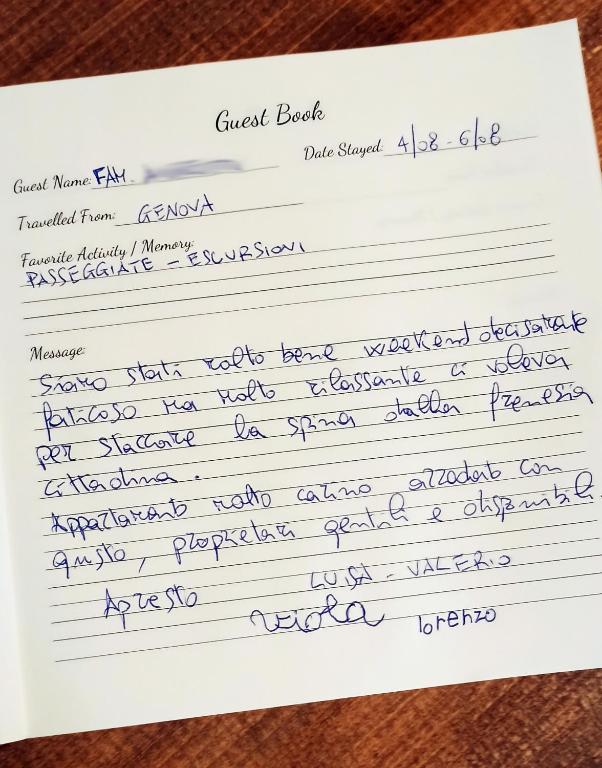 Guest Book
Guest Name: FAM.
Date Stayed: 4/08 - 6/08
Travelled From: GENOVA
Favorite Activity / Memory:
PASSEGGIATE - ESCURSIONI
Message:
Siamo stati molto bene weekend decisamente
faticoso ma molto rilassante ci voleva
per staccare la spina dalla frenesia
cittadina.
Appartamento molto carino arredato con
gusto, proprietari gentili e disponibili.
Apresto
LUISA - VALERIO
viola lorenzo